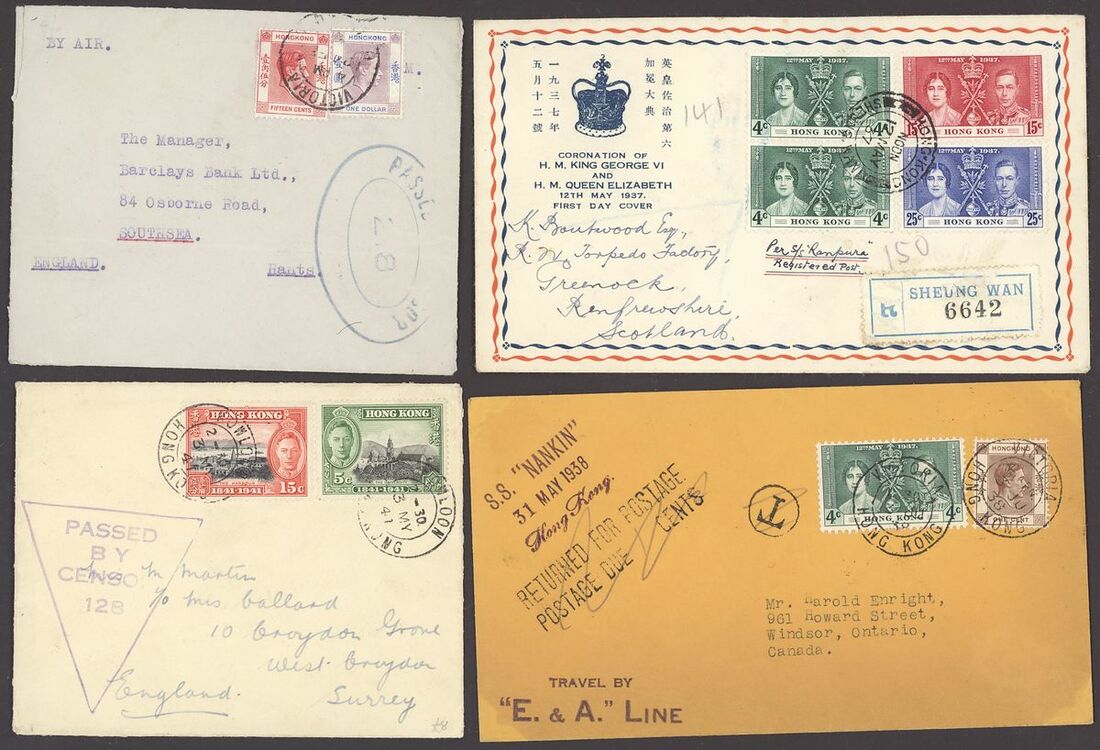 BY AIR.
HONGKONG
FIFTEEN CENTS
HONGKONG
香港
ONE DOLLAR
VICTORIA
The Manager,
Barclays Bank Ltd.,
84 Osborne Road,
SOUTHSEA.
ENGLAND. Hants
PASSED
28
英皇佐治第六
加冕大典
一九三七年
五月十二號
CORONATION OF
H. M. KING GEORGE VI
AND
H. M. QUEEN ELIZABETH
12TH MAY 1937.
FIRST DAY COVER
141
12TH MAY 1937.
4c 4c
HONG KONG
12TH MAY 1937.
15c 15c
HONG KONG
12TH MAY 1937.
4c 4c
HONG KONG
12TH MAY 1937.
25c 25c
HONG KONG
HONG KONG
12 MAY
K. Boutwood Esq.,
R. N. Torpedo Factory,
Greenock,
Renfrewshire,
Scotland.
Per S/S Ranpura
Registered Post.
150
R SHEUNG WAN
6642
HONG KONG
1841-1941 15c
HONG KONG
5c 1841-1941
KOWLOON
HONG KONG
KOWLOON
MY
41
HONG KONG
PASSED
BY
CENSO
128
Mrs M. Martin
c/o Mrs Callard
10 Croydon Grove
West Croydon
England. Surrey
£8
S.S. "NANKIN"
31 MAY 1938
Hong Kong.
RETURNED FOR POSTAGE
POSTAGE DUE CENTS
T
4c
HONG KONG
4c
HONGKONG
CENT
VICTORIA
HONG KONG
VICTORIA
HONG KONG
Mr. Harold Enright,
961 Howard Street,
Windsor, Ontario,
Canada.
TRAVEL BY
"E. & A." LINE